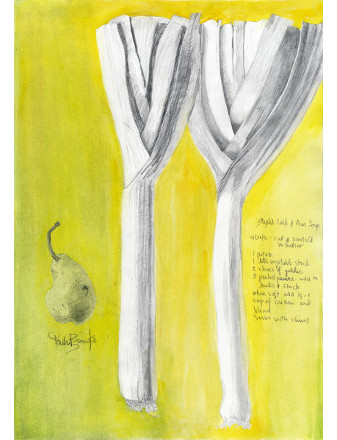 Leek & Pear Soup
Leeks - cut & sautéed
in butter
1 potato
1 litre vegetable stock
2 cloves of garlic
3 peeled pears - add to
leeks & stock
when soft - add
cup of cream and
blend
Serve with chives